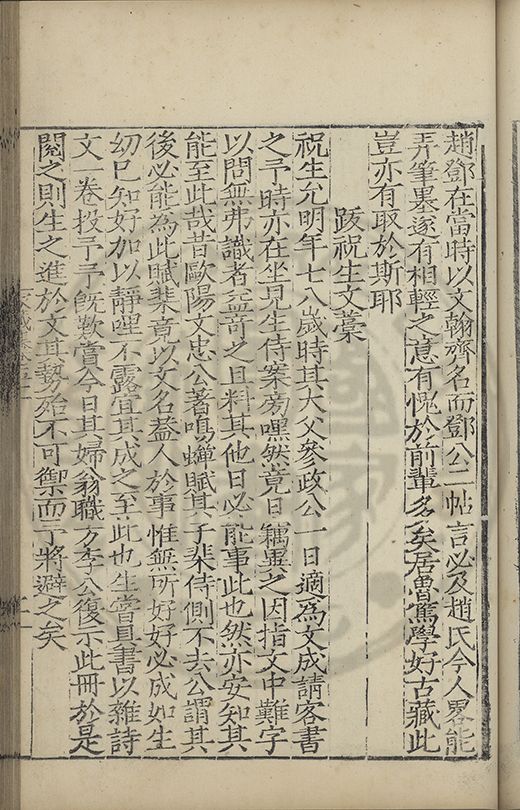 趙鄧在當時以文翰齊名而鄧公二帖言必及趙氏今人畧能
弄筆墨遂有相輕之意有愧於前輩多矣居魯篤學好古藏此
豈亦有取於斯耶
跋祝生文藁
祝生允明年七八歲時其大父參政公一日適為文成請客書
之予時亦在坐見生侍案旁嘿然竟日竊異之因指文中難字
以問無弗識者益奇之且料其他日必能事此也然亦安知其
能至此哉昔歐陽文忠公著鳴蟬賦其子棐侍側不去公謂其
後必能為此賦棐竟以文名葢人於事惟無所好好必成如生
幼已知好加以靜嘿不露宜其成之至此也生嘗具書以雜詩
文一卷投予予旣歎賞今日其婦翁職方李公復示此冊於是
閱之則生之進於文其勢殆不可禦而予將避之矣